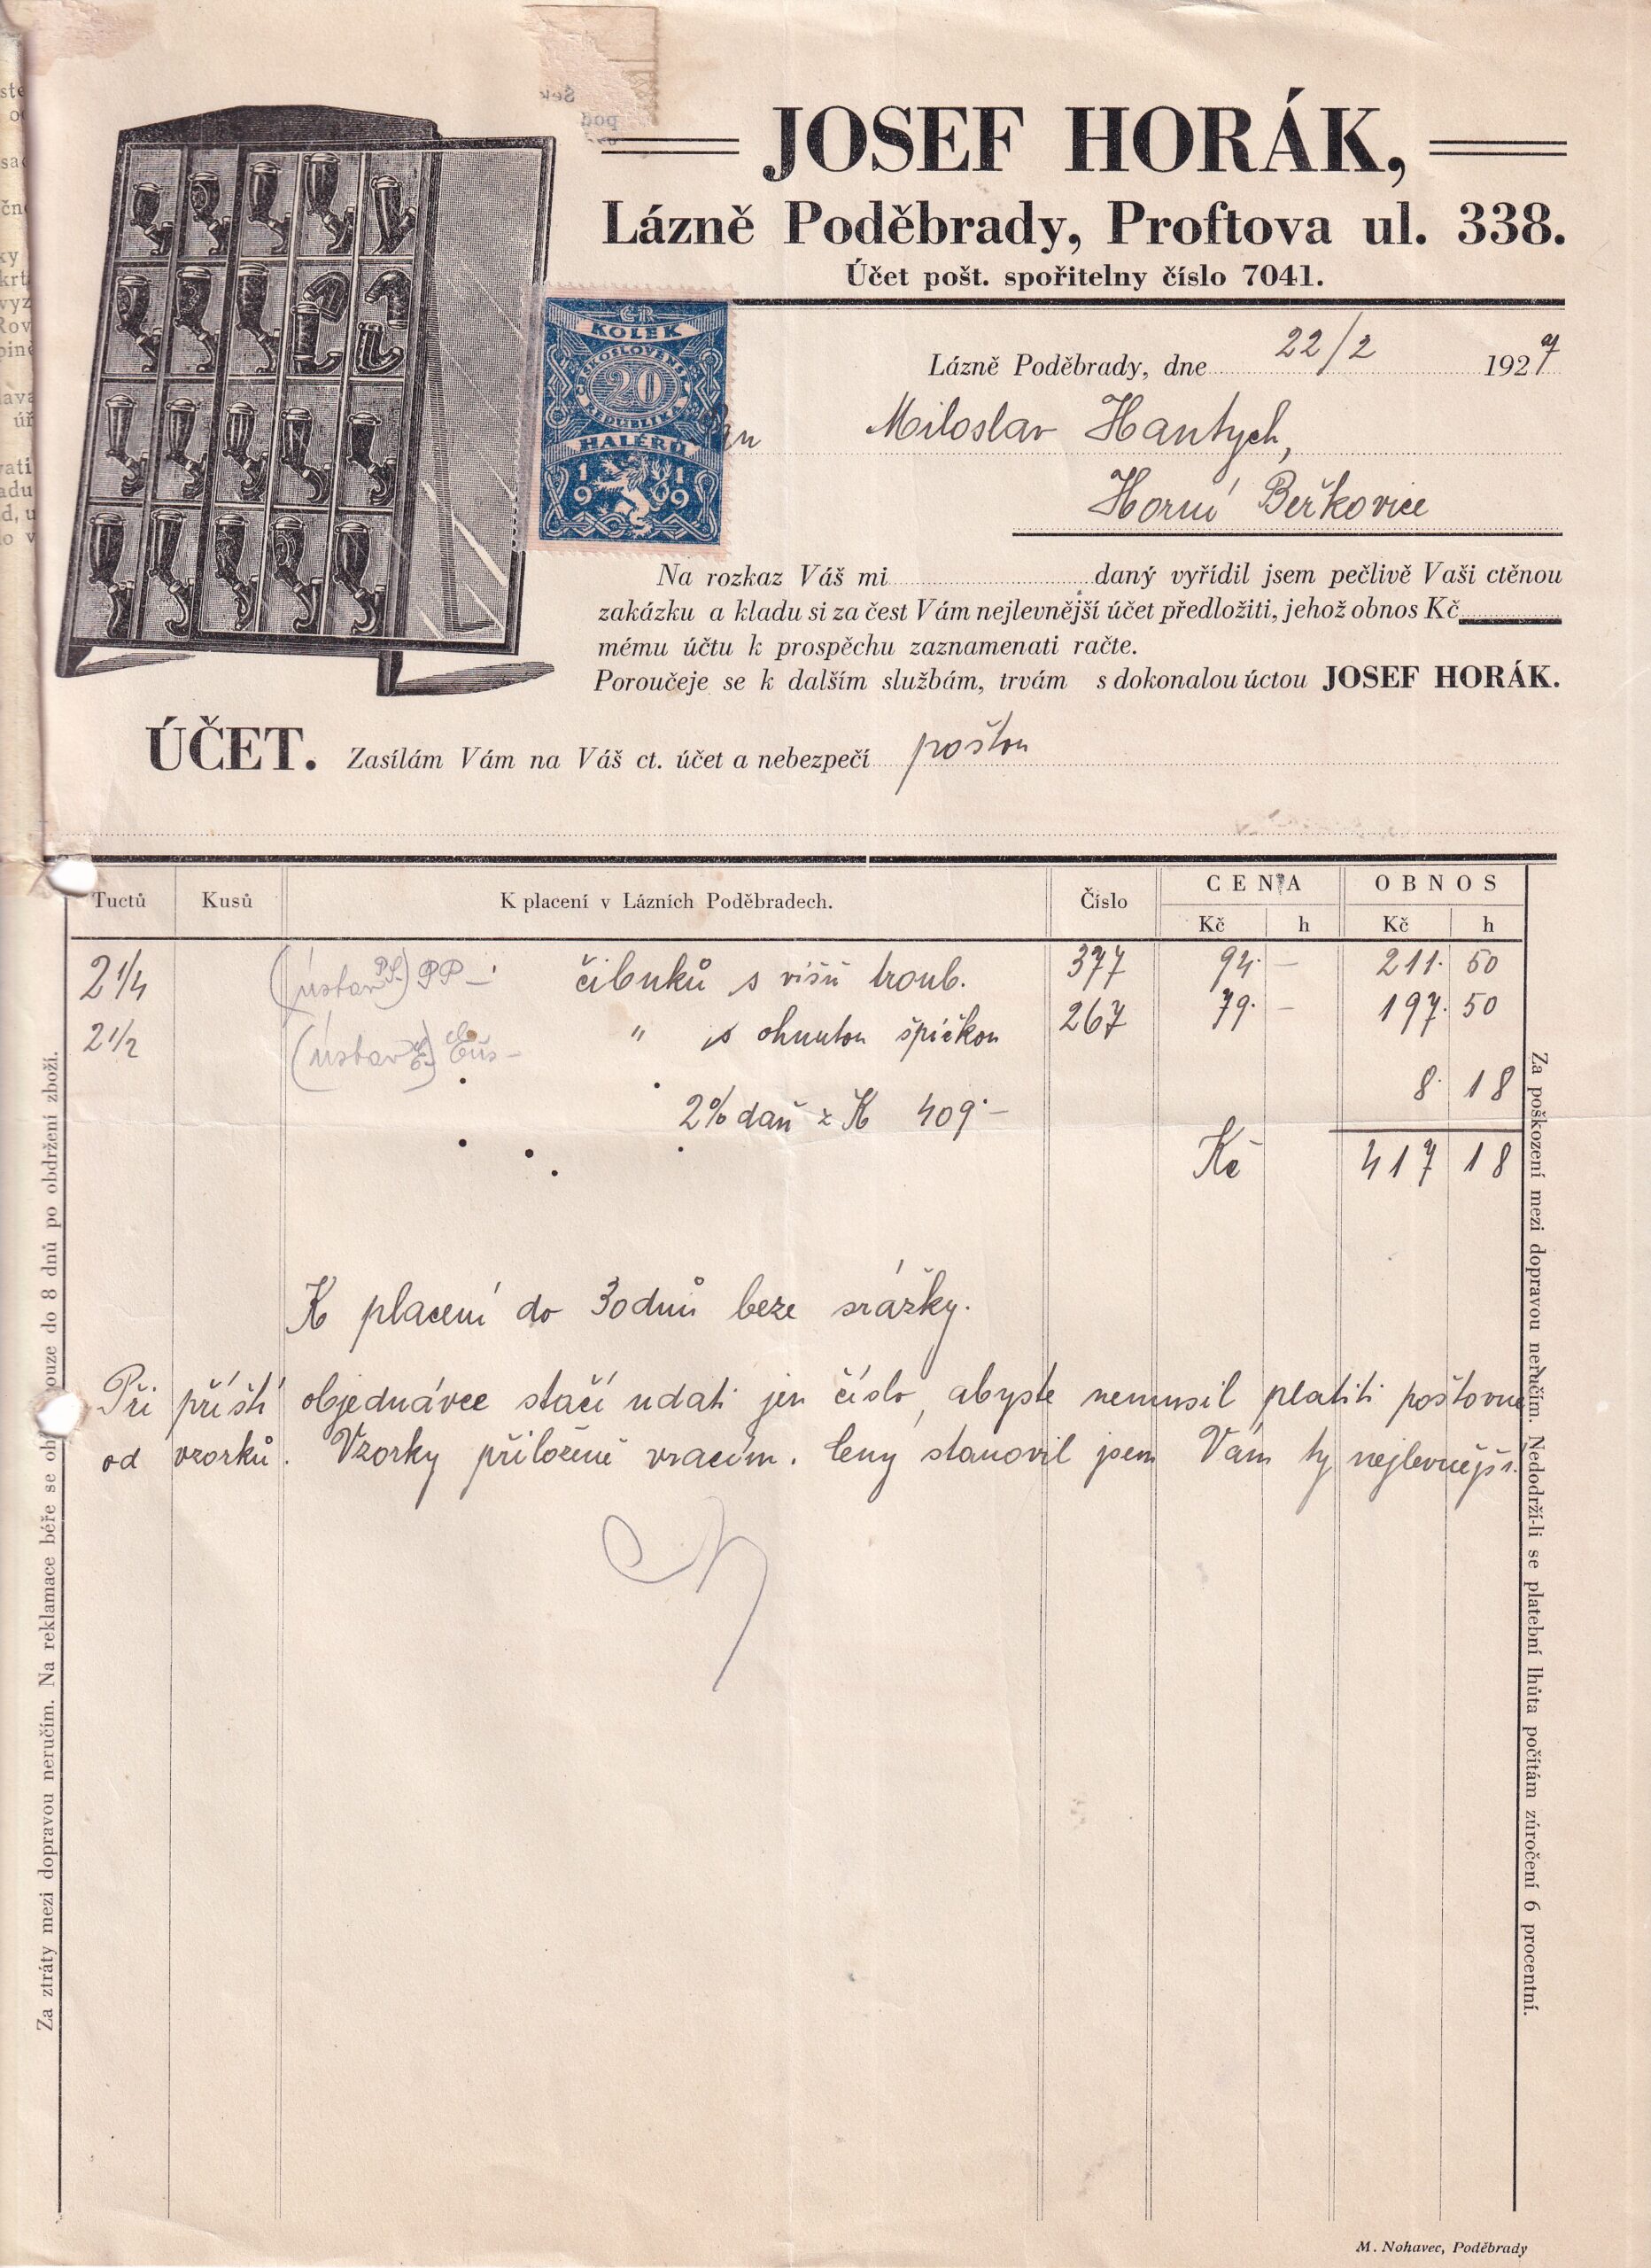 JOSEF HORÁK,
Lázně Poděbrady, Proftova ul. 338.
Účet pošt. spořitelny číslo 7041.
Lázně Poděbrady, dne 22/2 1927
ČR
KOLEK
ČESKOSLOVENSKÁ
20
REPUBLIKA
HALÉŘŮ
1919
Pan Miloslav Hantych,
Horní Beřkovice
Na rozkaz Váš mi daný vyřídil jsem pečlivě Vaši ctěnou
zakázku a kladu si za čest Vám nejlevnější účet předložiti, jehož obnos Kč
mému účtu k prospěchu zaznamenati račte.
Poroučeje se k dalším službám, trvám s dokonalou úctou JOSEF HORÁK.
ÚČET. Zasílám Vám na Váš ct. účet a nebezpečí poštou
Tuctů Kusů K placení v Lázních Poděbradech. Číslo CENA OBNOS
Kč h Kč h
2 1/4 (ústav P.S.) PP – čibuků s višň troub. 377 94. – 211. 50
2 1/2 (ústav " s ohnutou špičkou 267 79. – 197. 50
2% daň z K 409·– 8. 18
Kč 417 18
K placení do 30 dnů beze srážky.
Při příští objednávce stačí udati jen číslo, abyste nemusil platiti poštovné
od vzorků. Vzorky přiložené vracím. Ceny stanovil jsem Vám ty nejlevnější.
Za ztráty mezi dopravou neručím. Na reklamace béře se oh ouze do 8 dnů po obdržení zboží.
Za poškození mezi dopravou neručím. Nedodrží-li se platební lhůta počítám zúročení 6 procentní.
M. Nohavec, Poděbrady